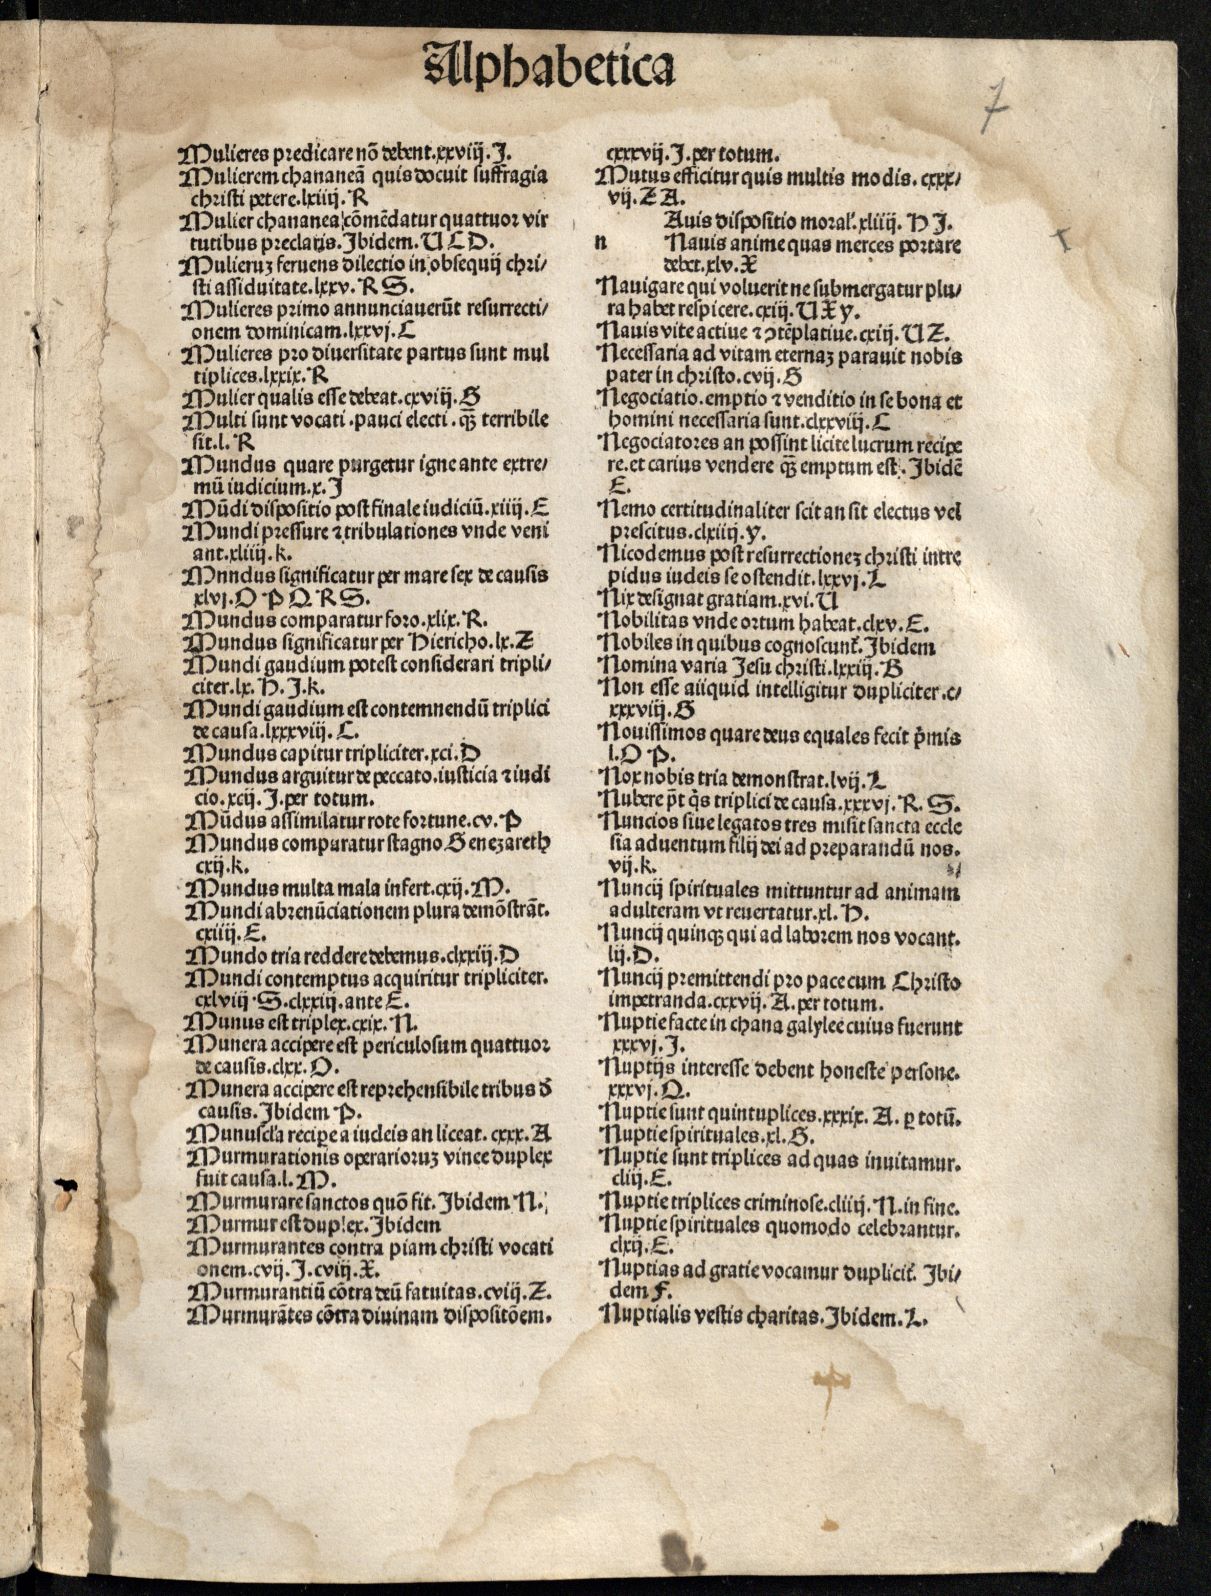 Alphabetica
7
Mulieres predicare nō debent.xxviij.J.
Mulierem chananeā quis docuit suffragia
christi petere.lxiiij.R
Mulier chananea cōmēdatur quattuor vir
tutibus preclaris.Ibidem.U C D.
Mulieruꝫ feruens dilectio in obsequij chri/
sti assiduitate.lxxv.R S.
Mulieres primo annunciauerūt resurrecti/
onem dominicam.lxxvj.C
Mulieres pro diuersitate partus sunt mul
tiplices.lxxix.R
Mulier qualis esse debeat.cxviij.G
Multi sunt vocati.pauci electi.qꝫ̄ terribile
sit.l.R
Mundus quare purgetur igne ante extre/
mū iudicium.x.J
Mūdi dispositio post finale iudiciū.xiiij.E
Mundi pressure ⁊ tribulationes vnde veni
ant.xliiij.k.
Mnndus significatur per mare sex de causis
xlvj.O P Q R S.
Mundus comparatur foro.xlix.R.
Mundus significatur per Hiericho.lx.Z
Mundi gaudium potest considerari tripli/
citer.lx.H.J.k.
Mundi gaudium est contemnendū triplici
de causa.lxxxviij.C.
Mundus capitur tripliciter.xci.D
Mundus arguitur de peccato.iusticia ⁊ iudi
cio.xcij.J.per totum.
Mūdus assimilatur rote fortune.cv.P
Mundus comparatur stagno Genezareth
cxij.k.
Mundus multa mala infert.cxij.M.
Mundi abrenūciationem plura demōstrāt.
cxiiij.E.
Mundo tria reddere debemus.clxxiij.D
Mundi contemptus acquiritur tripliciter.
cxlviij.S.clxxiij.ante E.
Munus est triplex.cxix.N.
Munera accipere est periculosum quattuor
de causis.clxx.O.
Munera accipere est reprehensibile tribus d̄
causis.Ibidem P.
Munuscl'a recipe a iudeis an liceat.cxxx.A
Murmurationis operarioruꝫ vinee duplex
fuit causa.l.M.
Murmurare sanctos quō fit.Ibidem N.
Murmur est duplex.Ibidem
Murmurantes contra piam christi vocati
onem.cvij.J.cviij.X.
Murmurantiū cōtra deū fatuitas.cviij.Z.
Murmurātes cōtra diuinam dispositōem.
cxxxvij.J.per totum.
Mutus efficitur quis multis modis.cxxx/
vij.Z A.
Auis dispositio moral'.xliiij.H J.
n Nauis anime quas merces portare
debet.xlv.X
Nauigare qui voluerit ne submergatur plu/
ra habet respicere.cxiij.U X y.
Nauis vite actiue ⁊ ꝯtēplatiue.cxiij.U Z.
Necessaria ad vitam eternaꝫ parauit nobis
pater in christo.cvij.G
Negociatio.emptio ⁊ venditio in se bona et
homini necessaria sunt.clxxviij.C
Negociatores an possint licite lucrum recipe
re.et carius vendere qꝫ̄ emptum est.Ibidē
E.
Nemo certitudinaliter scit an sit electus vel
prescitus.clxiiij.y.
Nicodemus post resurrectioneꝫ christi intre
pidus iudeis se ostendit.lxxvj.L
Nix designat gratiam.xvi.U
Nobilitas vnde ortum habeat.clxv.E.
Nobiles in quibus cognoscunt'.Ibidem
Nomina varia Jesu christi.lxxiij.B
Non esse aiiquid intelligitur dupliciter.c/
xxxviij.G
Nouissimos quare deus equales fecit p̄mis
l.O P.
Nox nobis tria demonstrat.lvij.L
Nubere p̄t q̇s triplici de causa.xxxvj.R.S.
Nuncios siue legatos tres misit sancta eccle
sia aduentum filij dei ad preparandū nos.
vij.k.
Nuncij spirituales mittuntur ad animam
adulteram vt reuertatur.xl.H.
Nuncij quinqꝫ qui ad laborem nos vocant.
lij.D.
Nuncij premittendi pro pace cum Christo
impetranda.cxxvij.A.per totum.
Nuptie facte in chana galylee cuius fuerunt
xxxvj.J.
Nuptijs interesse debent honeste persone.
xxxvj.Q.
Nuptie sunt quintuplices.xxxix.A.ꝑ totū.
Nuptie spirituales.xl.G.
Nuptie sunt triplices ad quas inuitamur.
cliij.E.
Nuptie triplices criminose.cliiij.N.in fine.
Nuptie spirituales quomodo celebrantur.
clxij.E.
Nuptias ad gratie vocamur duplicit'.Ibi/
dem F.
Nuptialis vestis charitas.Ibidem.L.